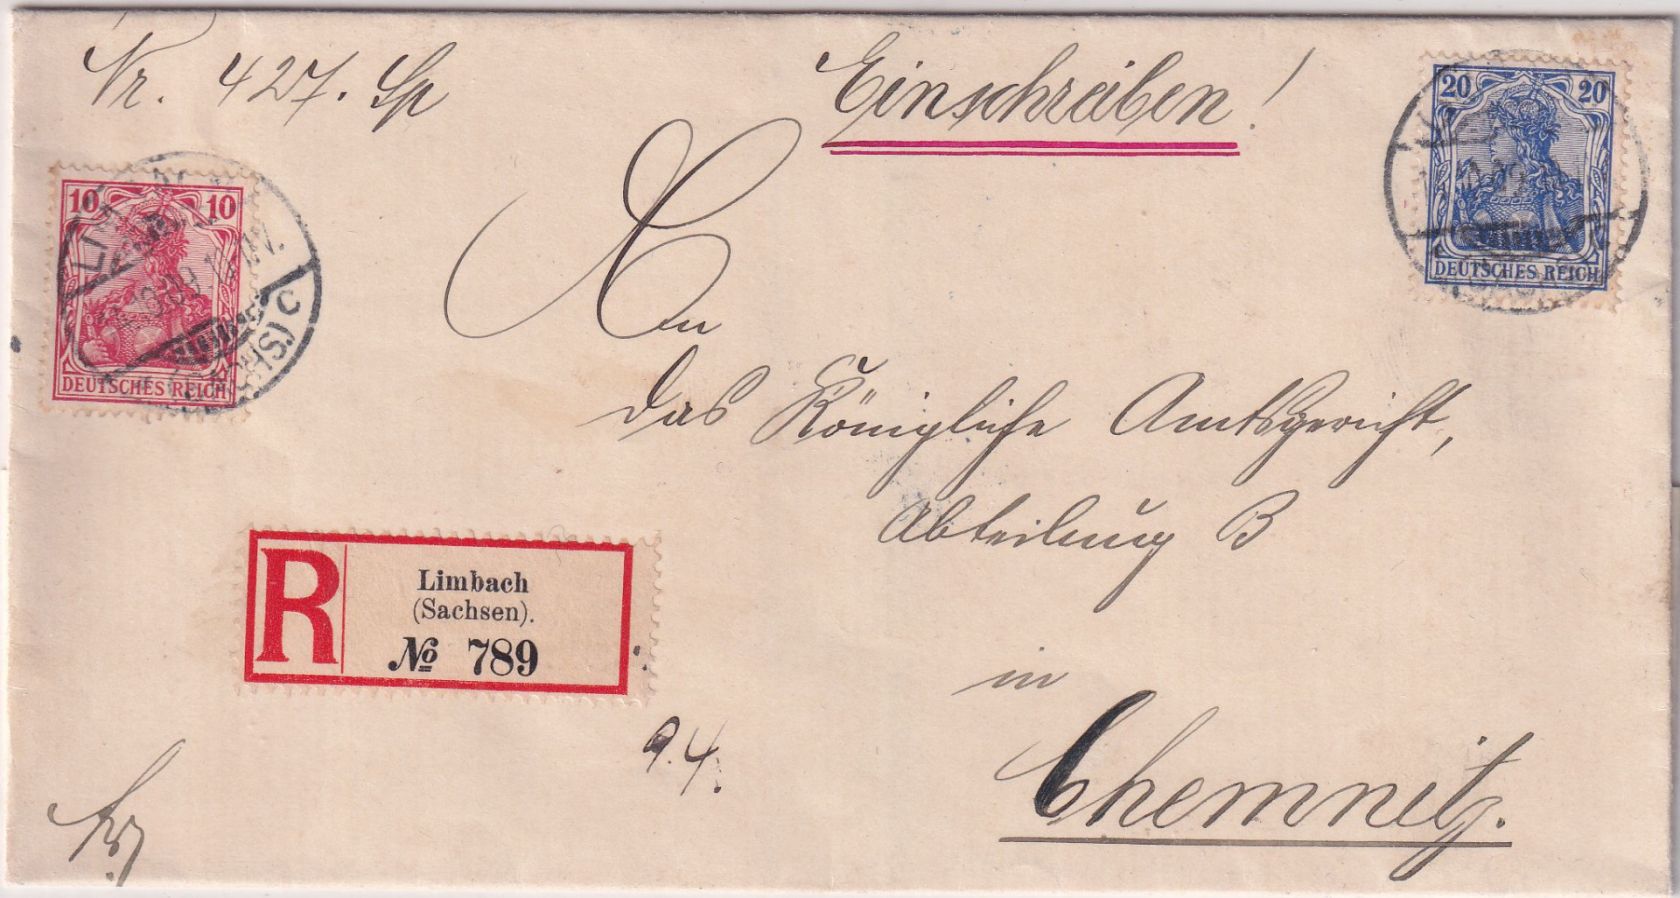 Nr. 427. Sp
Einschreiben!
20 20
DEUTSCHES REICH
10 10
DEUTSCHES REICH
C
An
das Königliche Amtsgericht,
Abteilung B
in
Chemnitz.
R
Limbach
(Sachsen).
№ 789
9.4.